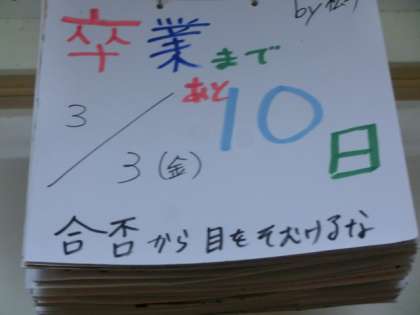 by
卒業まで
あと10日
3/3(金)
合否から目をそむけるな